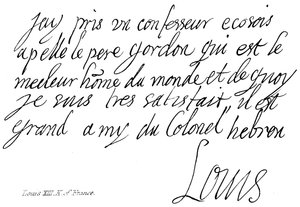 jay pris vn confesseur ecosois
apelle le pere gordon qui est le
meilleur home du monde et de quoy
je suis tres satisfait il est
grand amy du Colonel hebron
Louis
Louis XIII. K. of France.